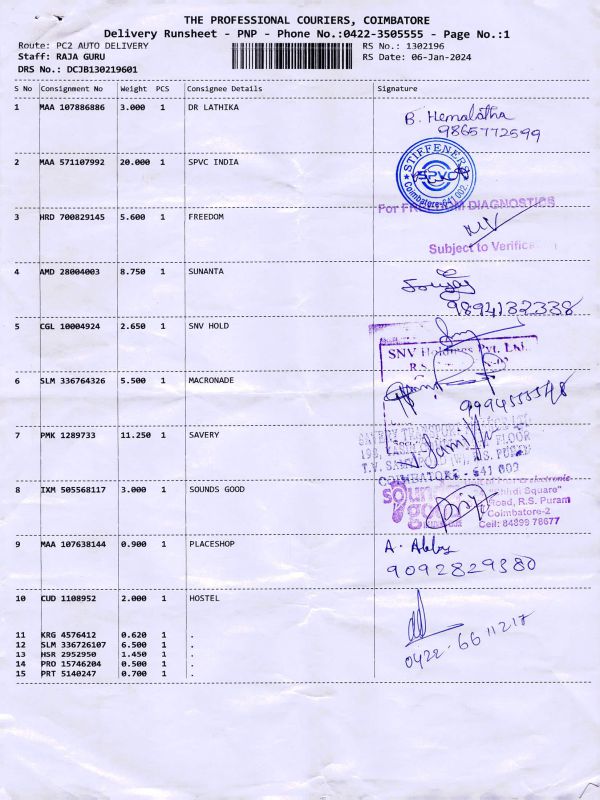 THE PROFESSIONAL COURIERS, COIMBATORE
Delivery Runsheet - PNP - Phone No.:0422-3505555 - Page No.:1
Route: PC2 AUTO DELIVERY RS No.: 1302196
Staff: RAJA GURU RS Date: 06-Jan-2024
DRS No.: DCJB130219601
S No Consignment No Weight PCS Consignee Details Signature
1 MAA 107886886 3.000 1 DR LATHIKA
B. Hemalatha
9865772599
2 MAA 571107992 20.000 1 SPVC INDIA
STIFFENERS
SPVC
Coimbatore-641 002.
3 HRD 700829145 5.600 1 FREEDOM
For FREEDOM DIAGNOSTICS
Subject to Verific
4 AMD 28004003 8.750 1 SUNANTA
9894132338
5 CGL 10004924 2.650 1 SNV HOLD
SNV Holdings Pvt. Ltd.
R.S.
6 SLM 336764326 5.500 1 MACRONADE
9994555548
7 PMK 1289733 11.250 1 SAVERY
FLOOR
R.S. PURAM
COIMBATORE - 641 002
8 IXM 505568117 3.000 1 SOUNDS GOOD
electronic
Square"
Road, R.S. Puram
Coimbatore-2
Cell: 84899 78677
9 MAA 107638144 0.900 1 PLACESHOP
A. Abby
9092829380
10 CUD 1108952 2.000 1 HOSTEL
0422-6611217
11 KRG 4576412 0.620 1 .
12 SLM 336726107 6.500 1 .
13 HSR 2952950 1.450 1 .
14 PRO 15746204 0.500 1 .
15 PRT 5140247 0.700 1 .